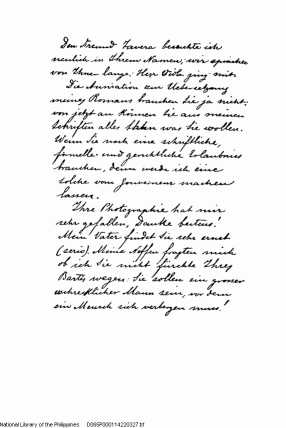 Den Freund Tavera besuchte ich
neulich in Ihrem Namen; wir sprachen
von Ihnen lange. Herr Viola ging mit.
Die Autorisation zur Uebersetzung
meines Romans brauchen Sie ja nicht:
von jetzt an können Sie aus meinen
Schriften alles thun was Sie wollen.
Wenn Sie noch eine schriftliche,
formelle und gerichtliche Erlaubniss
brauchen, dann werde ich eine
solche vom Gouvernement machen
lassen.
Ihre Photographie hat mir
sehr gefallen, Danke bestens!
Mein Vater findet Sie sehr ernst
(serio). Meine Neffen fragten mich
ob ich Sie nicht fürchte Ihres
Barts wegen. Sie sollen ein grosser
schrecklicher Mann sein, vor dem
ein Mensch sich verbergen muss!
National Library of the Philippines D095P00011422032?.tif